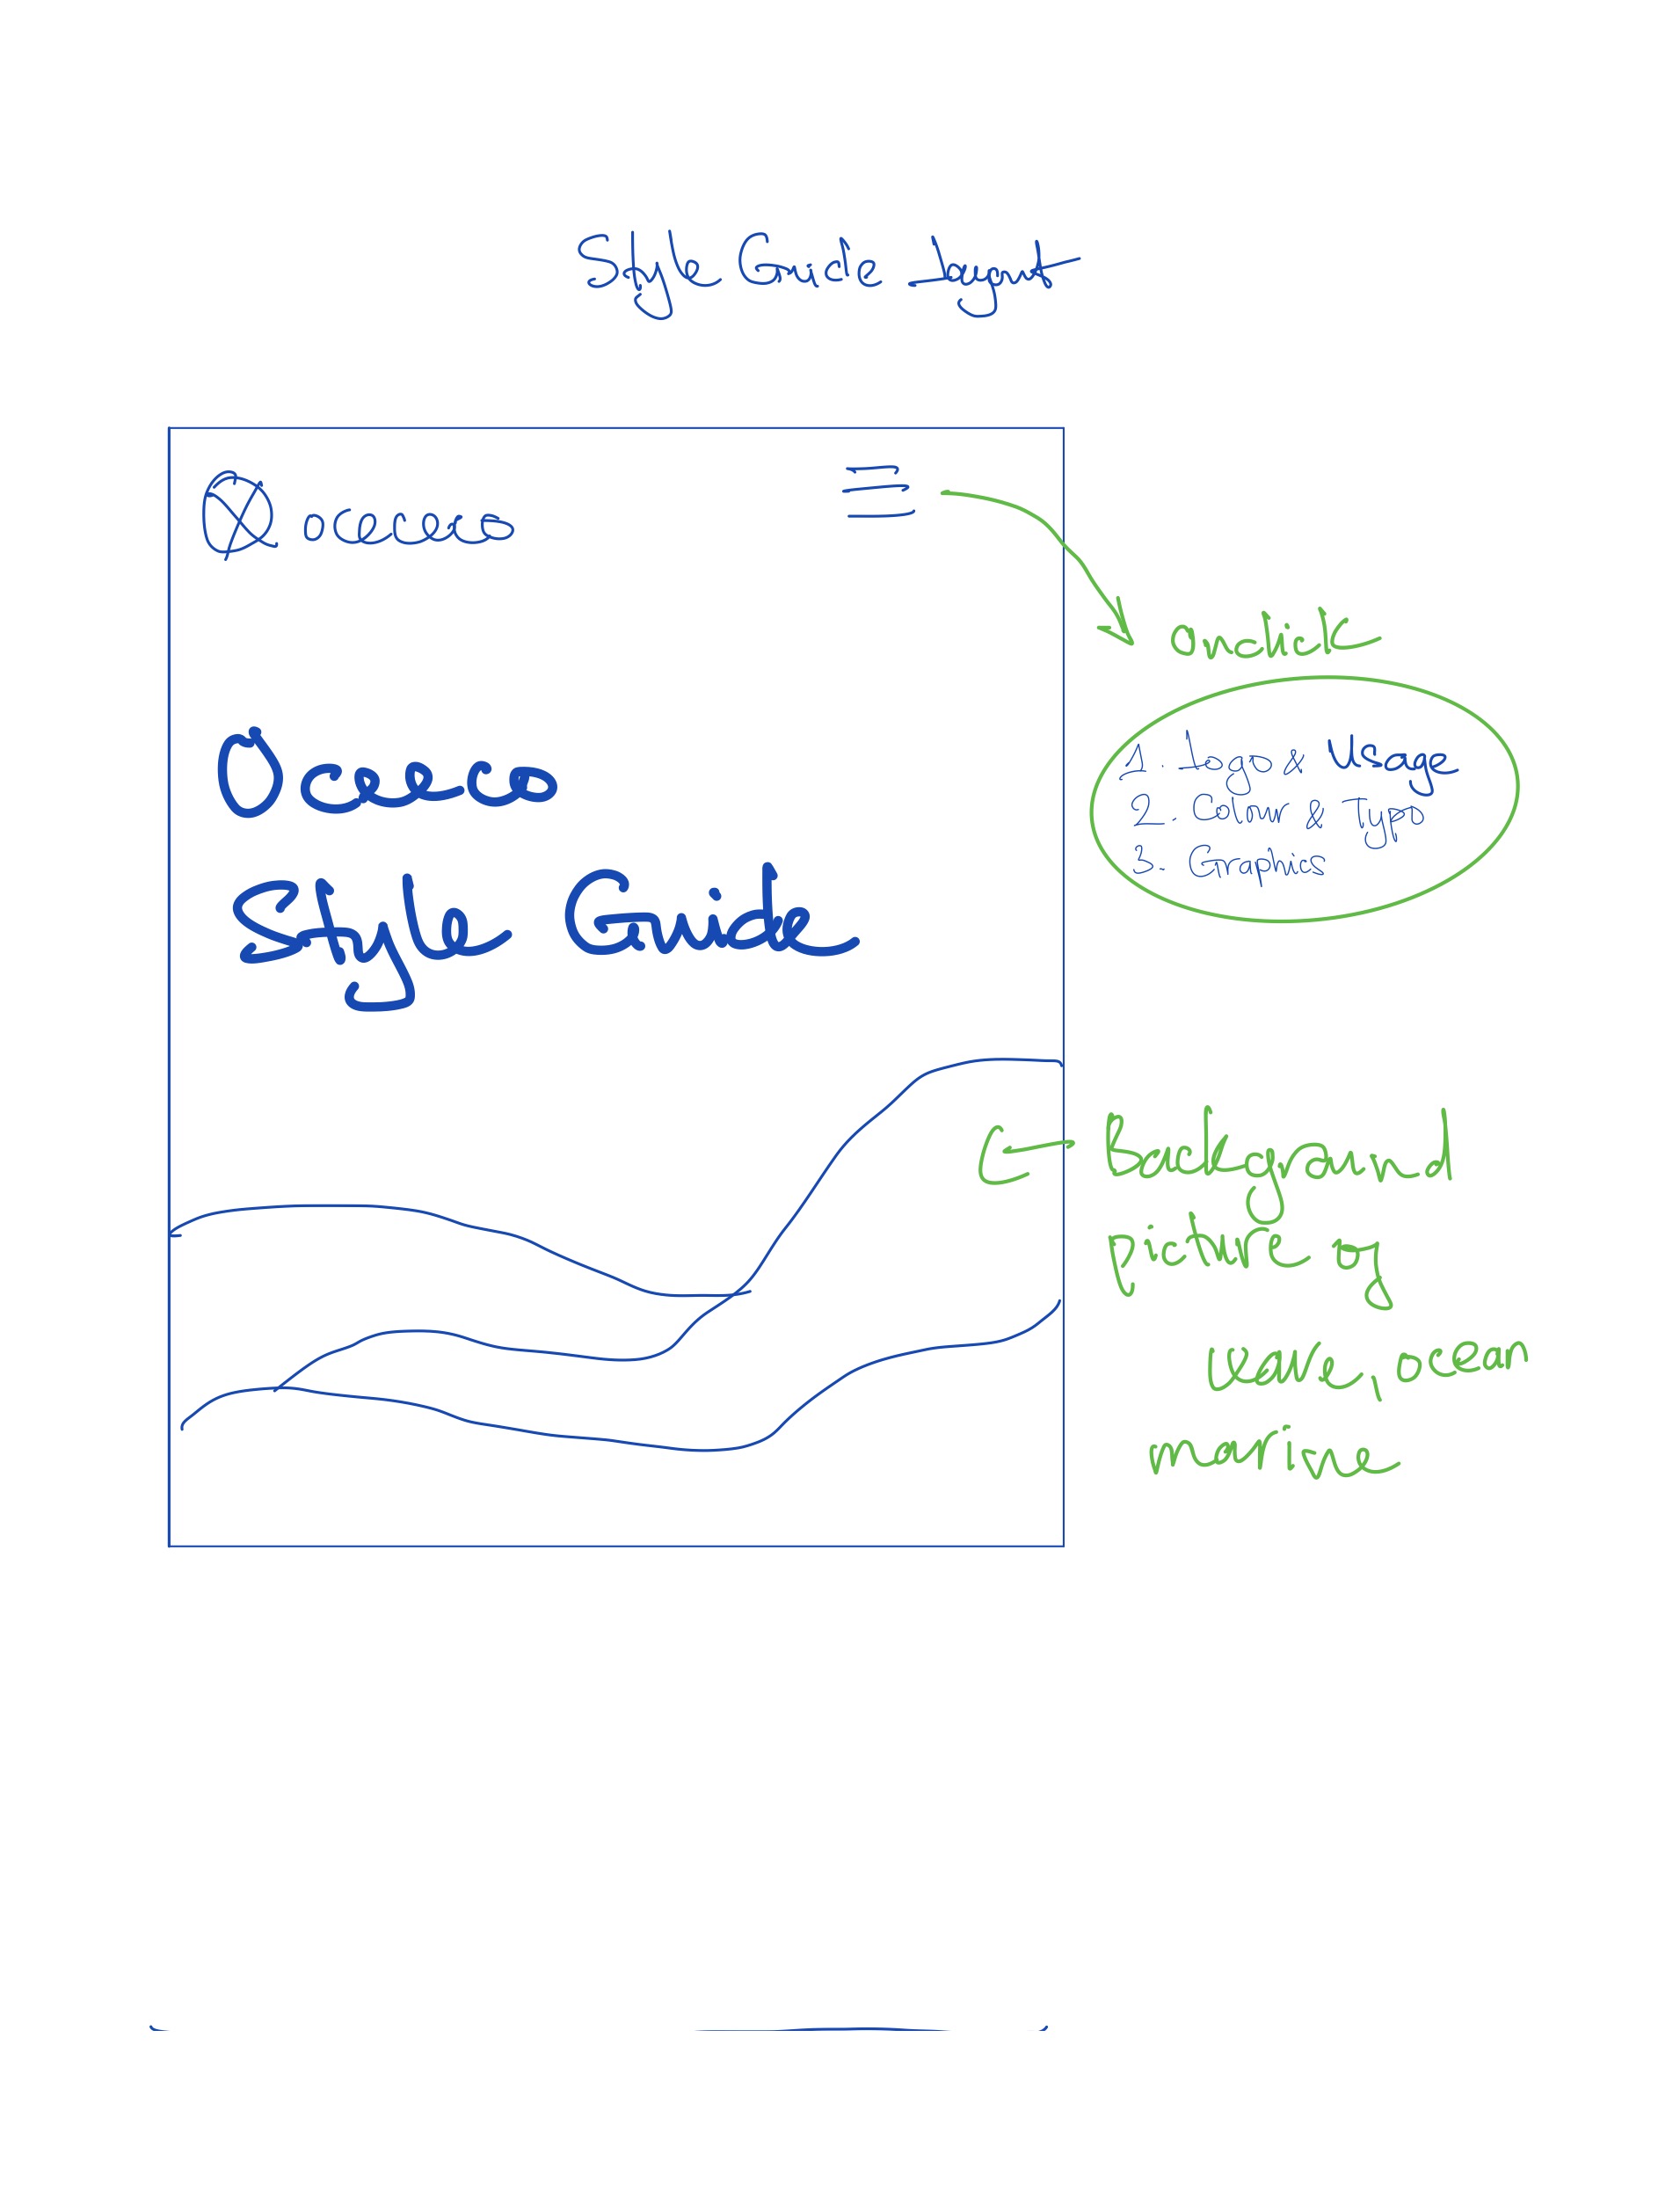 Style Guide Layout
Style Guide
onclick
1. Logo & Usage
2. Colour & Typo
3. Graphics
Background
picture of
wave, ocean
marine